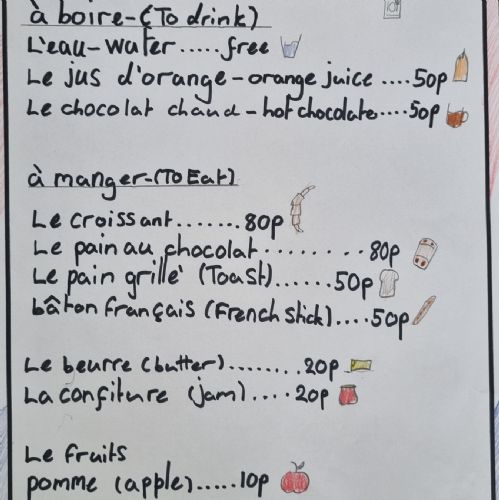 à boire-(To drink)
L'eau-water.....free
Le jus d'orange-orange juice ....50p
Le chocolat chaud-hot chocolate....50p
à manger-(To Eat)
Le croissant.......80p
Le pain au chocolat.........80p
Le pain grillé (Toast)......50p
bâton français (French stick)....50p
Le beurre (butter)........20p
La confiture (jam)....20p
Le fruits
pomme (apple).....10p